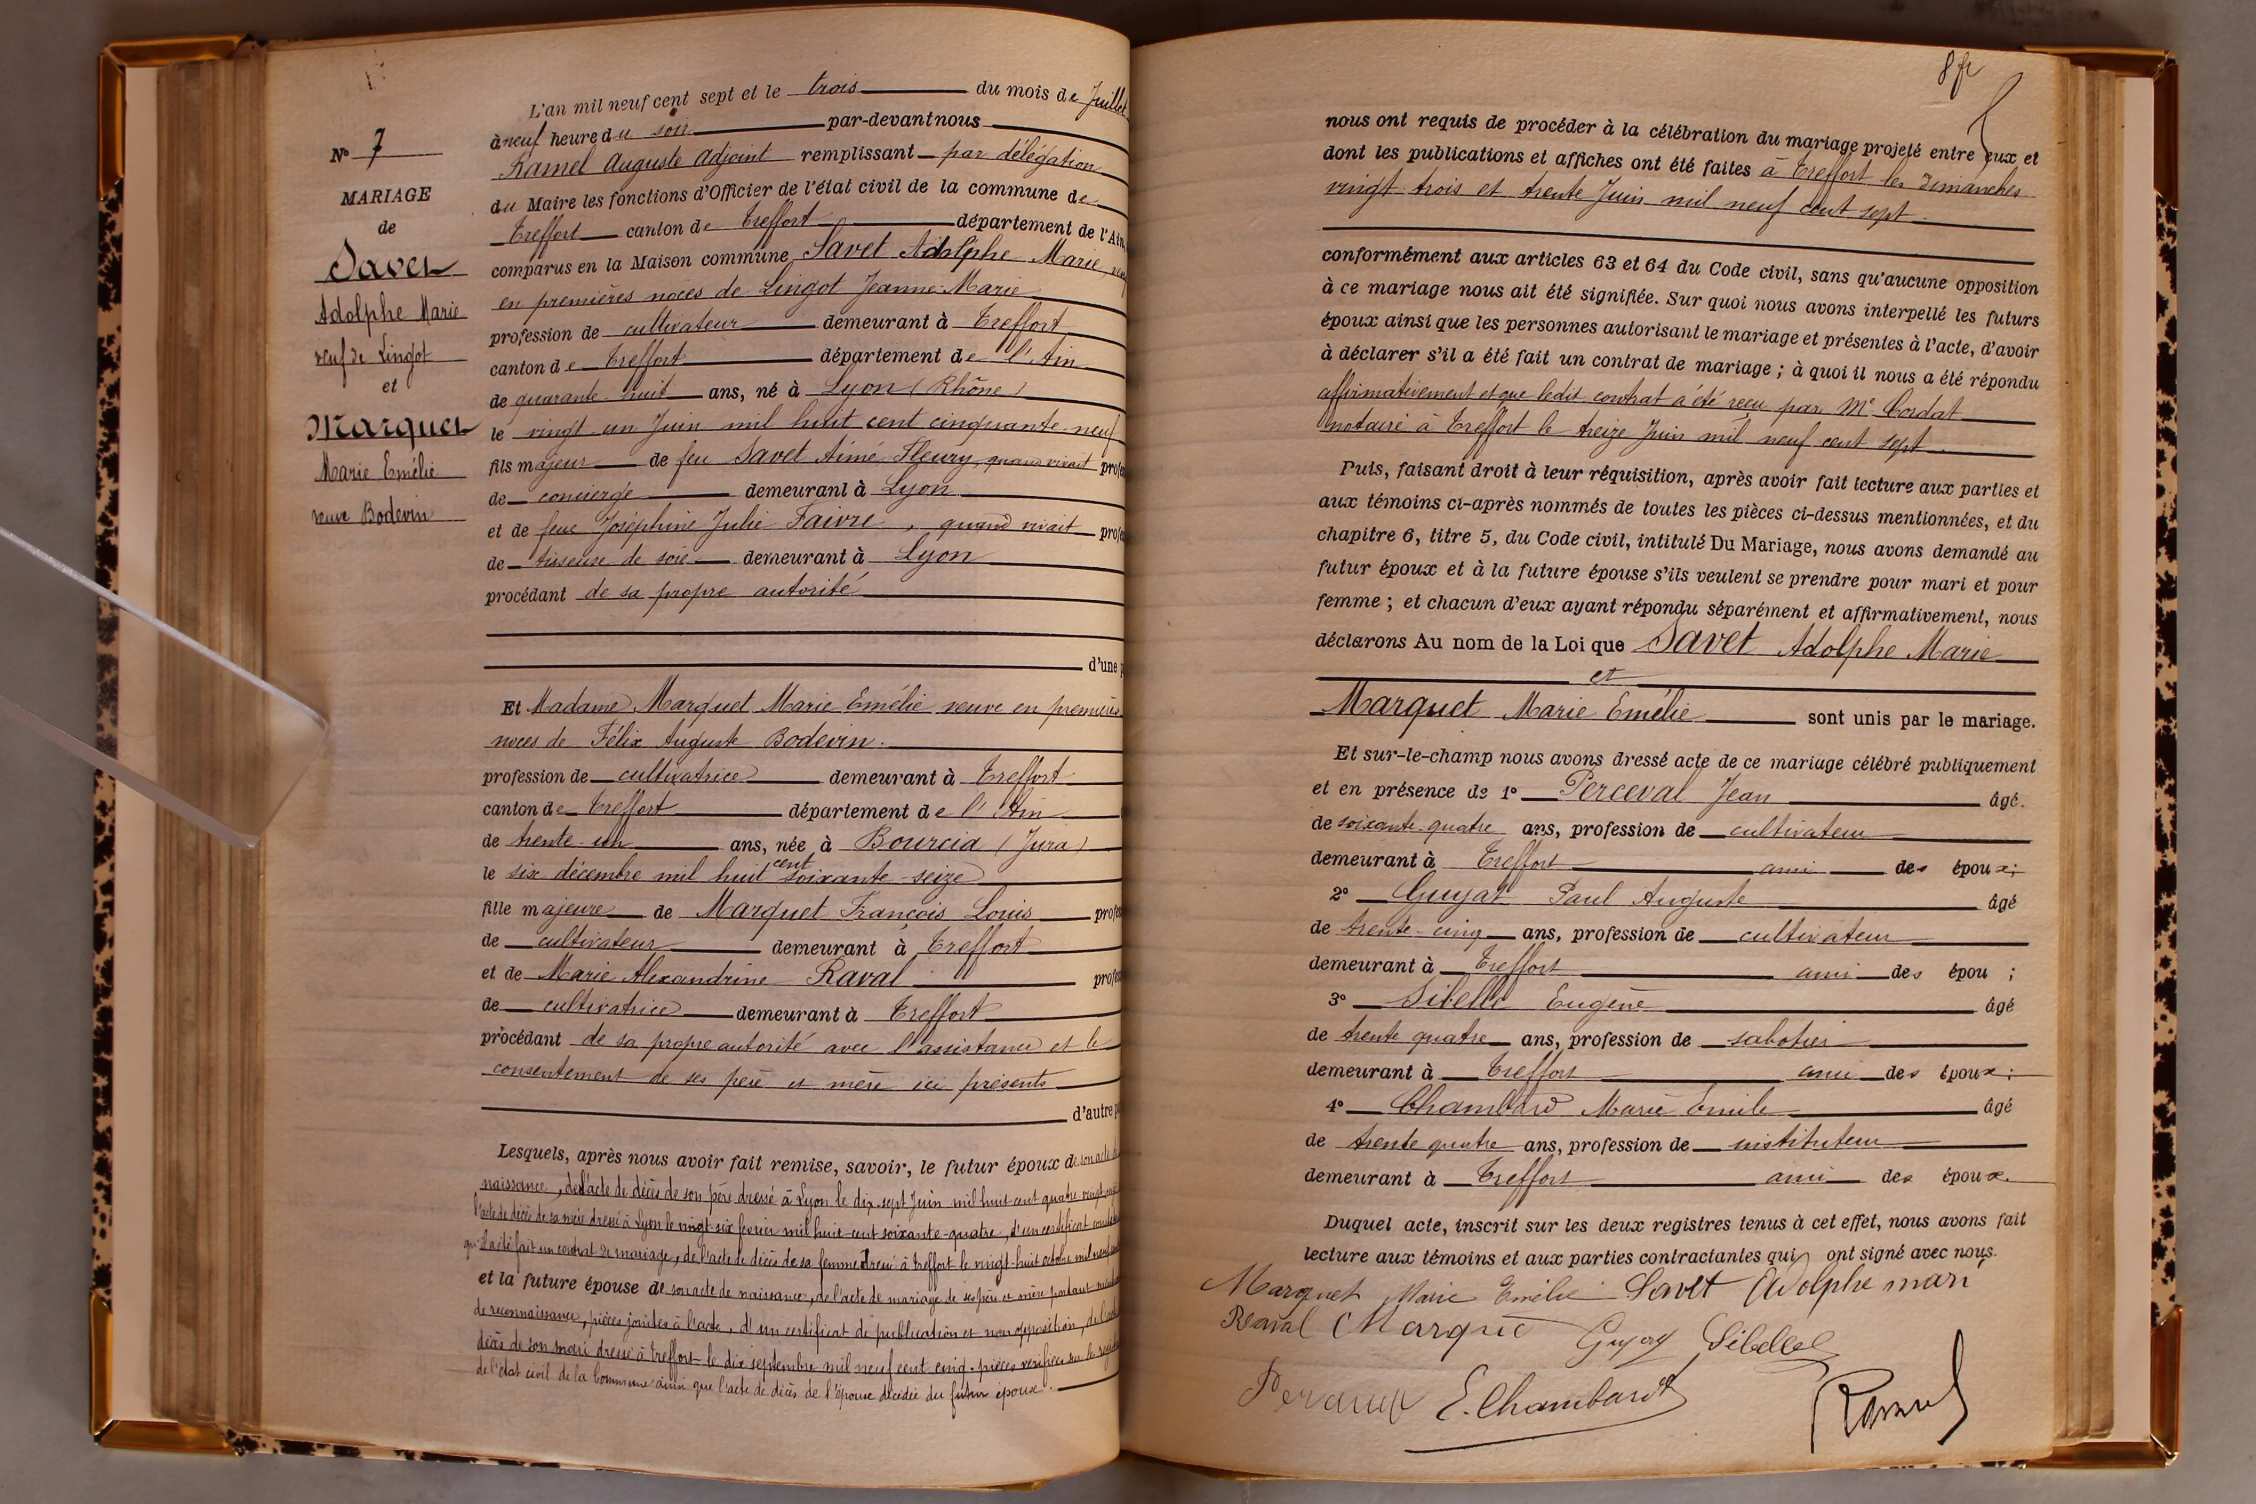 L'an mil neuf cent sept et le trois du mois de Juillet
à neuf heure du soir par-devant nous
Ramel Auguste Adjoint remplissant par délégation
du Maire les fonctions d'Officier de l'état civil de la commune de
Treffort canton de Treffort département de l'Ain
comparus en la Maison commune Savet Adolphe Marie
en premières noces de Lingot Jeanne-Marie
profession de cultivateur demeurant à Treffort
canton de Treffort département de l'Ain
de quarante-huit ans, né à Lyon (Rhône)
le vingt un Juin mil huit cent cinquante-neuf
fils majeur de feu Savet Aimé Fleury, quand vivait
de concierge demeurant à Lyon
et de feue Joséphine Julie Faivre, quand vivait
de tisseuse de soie demeurant à Lyon
procédant de sa propre autorité
d'une
Et Madame Marquet Marie Emélie veuve en premières
noces de Félix Auguste Bodevin.
profession de cultivatrice demeurant à Treffort
canton de Treffort département de l'Ain
de trente un ans, née à Bourcia (Jura)
le six décembre mil huit cent soixante-seize
fille majeure de Marquet François Louis
de cultivateur demeurant à Treffort
et de Marie Alexandrine Raval
de cultivatrice demeurant à Treffort
procédant de sa propre autorité avec l'assistance et le
consentement de ses père et mère ici présents
d'autre
Lesquels, après nous avoir fait remise, savoir, le futur époux de son acte de
naissance, de l'acte de décès de son père dressé à Lyon le dix-sept Juin mil huit cent quatre vingt
l'acte de décès de sa mère dressé à Lyon le vingt-six février mil huit-cent soixante-quatre, d'un certificat
qu'il a été fait un contrat de mariage, de l'acte de décès de sa femme dressé à Treffort le vingt-huit octobre mil neuf
et la future épouse de son acte de naissance, de l'acte de mariage de ses père et mère portant
de reconnaissance, pièces jointes à l'acte, d'un certificat de publication et non opposition, de l'acte
décès de son mari dressé à Treffort le dix septembre mil neuf cent cinq. pièces vérifiées sur le
de l'état civil de la Commune ainsi que l'acte de décès de l'épouse décédée du futur époux.
N° 7
MARIAGE
de
Savet
Adolphe Marie
veuf de Lingot
et
Marquet
Marie Emélie
veuve Bodevin
nous ont requis de procéder à la célébration du mariage projeté entre eux et
dont les publications et affiches ont été faites à Treffort les Dimanches
vingt trois et trente Juin mil neuf cent sept
conformément aux articles 63 et 64 du Code civil, sans qu'aucune opposition
à ce mariage nous ait été signifiée. Sur quoi nous avons interpellé les futurs
époux ainsi que les personnes autorisant le mariage et présentes à l'acte, d'avoir
à déclarer s'il a été fait un contrat de mariage ; à quoi il nous a été répondu
affirmativement et que ledit contrat a été reçu par Me Cordat
notaire à Treffort le treize Juin mil neuf cent sept.
Puis, faisant droit à leur réquisition, après avoir fait lecture aux parties et
aux témoins ci-après nommés de toutes les pièces ci-dessus mentionnées, et du
chapitre 6, titre 5, du Code civil, intitulé Du Mariage, nous avons demandé au
futur époux et à la future épouse s'ils veulent se prendre pour mari et pour
femme ; et chacun d'eux ayant répondu séparément et affirmativement, nous
déclarons Au nom de la Loi que Savet Adolphe Marie
et
Marquet Marie Emélie sont unis par le mariage.
Et sur-le-champ nous avons dressé acte de ce mariage célébré publiquement
et en présence de 1° Perceval Jean âgé
de soixante-quatre ans, profession de cultivateur
demeurant à Treffort ami des époux;
2° Guyat Paul Auguste âgé
de trente-cinq ans, profession de cultivateur
demeurant à Treffort ami des épou ;
3° Sibelle Eugène âgé
de trente quatre ans, profession de sabotier
demeurant à Treffort ami des époux;
4° Chambard Marie Emile âgé
de trente quatre ans, profession de instituteur
demeurant à Treffort ami des époux.
Duquel acte, inscrit sur les deux registres tenus à cet effet, nous avons fait
lecture aux témoins et aux parties contractantes qui ont signé avec nous.
Marquet Marie Emélie Savet Adolphe mari
Raval Marque Sibelle
E. Chambard
Ramel